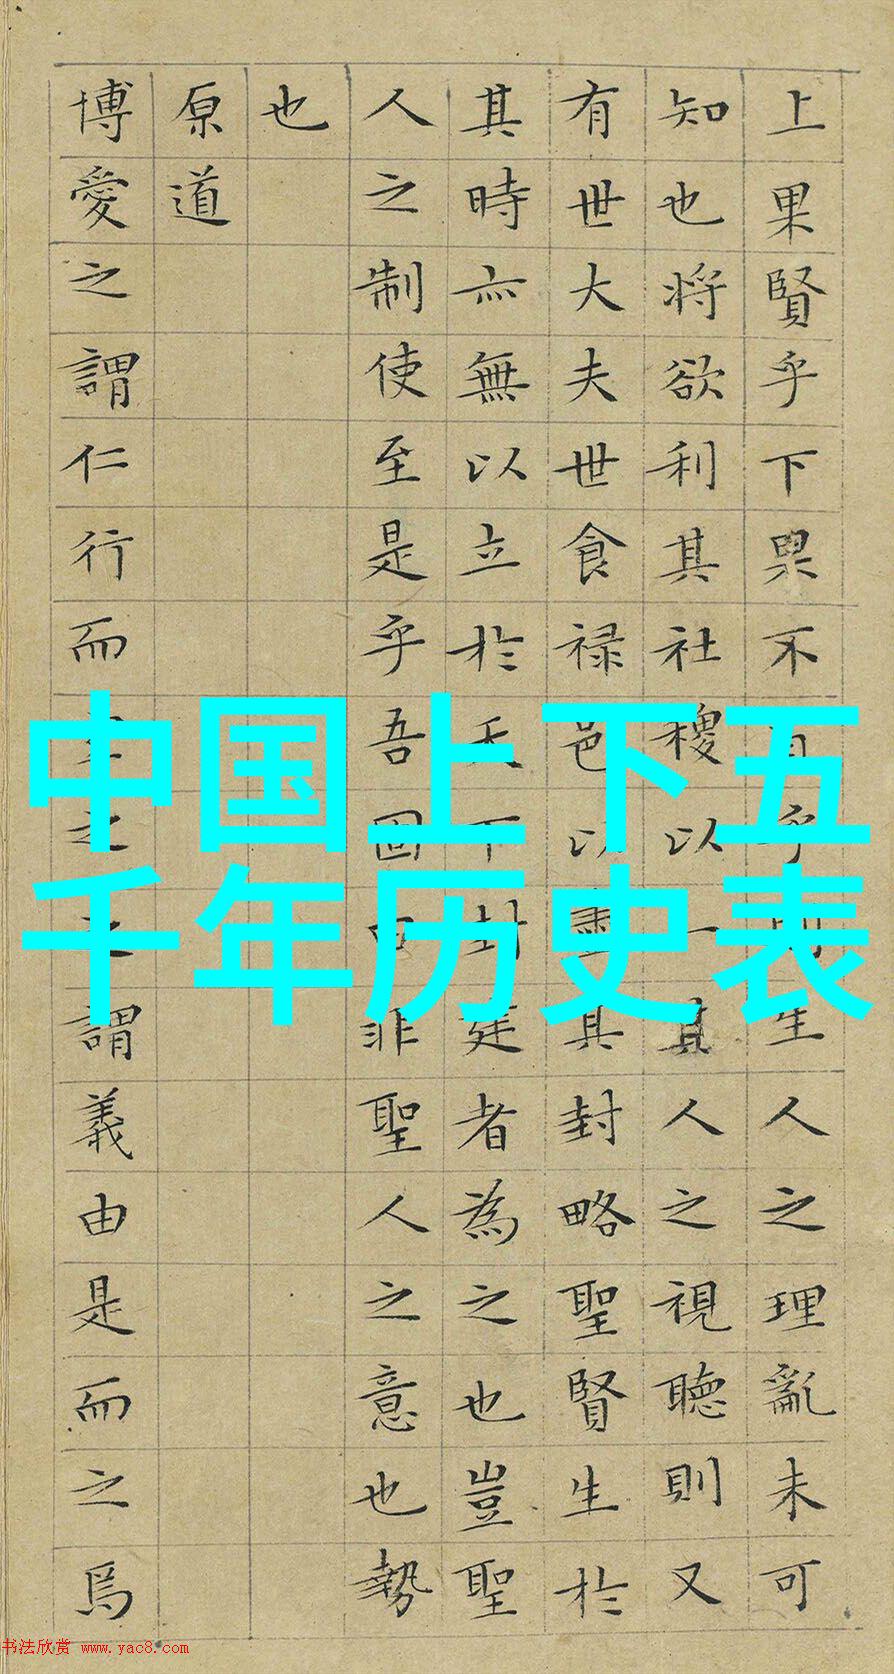 中国上下五
千年历史表
上果賢乎下果不乎生人之理亂未可
知也将欲利其社稷以一其人之視聽則又
有世大夫世食禄邑以其封略聖賢生於
其時亦無以立於天下封建者為之也豈聖
人之制使至是乎吾固曰非聖人之意也勢
也
原道
博愛之謂仁行而之之謂義由是而之焉
书法欣赏 www.yac8.com